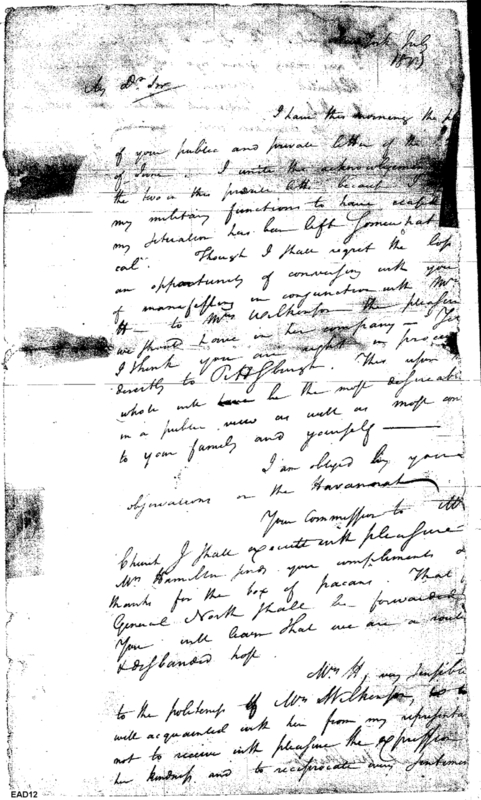 New York July
1800
My Dr. Sir
I have this morning the pl
of your public and private letter of the
of June. I unite the acknowledgement
the two in this private letter because
my military functions to have
my situation has been left somewhat
cal. Though I shall regret the loss
an opportunity of conversing with you
of manifesting in conjunction with Mrs
H— to Mrs Wilkinson the pleasure
we should have in her company — Yet
I think you are right in proceed
directly to Pittsburgh. This upon
whole will be the most desireable
in a public view as well as most con
to your family and yourself —
I am obliged by your
observations on the Havannah
Your commission to Mr
Church I shall execute with pleasure
Mrs Hamilton sends you compliments &
thanks for the box of pacans. That
General North shall be forwarded
You will learn that we are a
& disbanded
Mrs H, very sensible
to the politeness of Mrs Wilkinson, is
well acquainted with her from my representa
not to receive with pleasure the expression
her kindness and to reciprocate every sentimen
EAD12